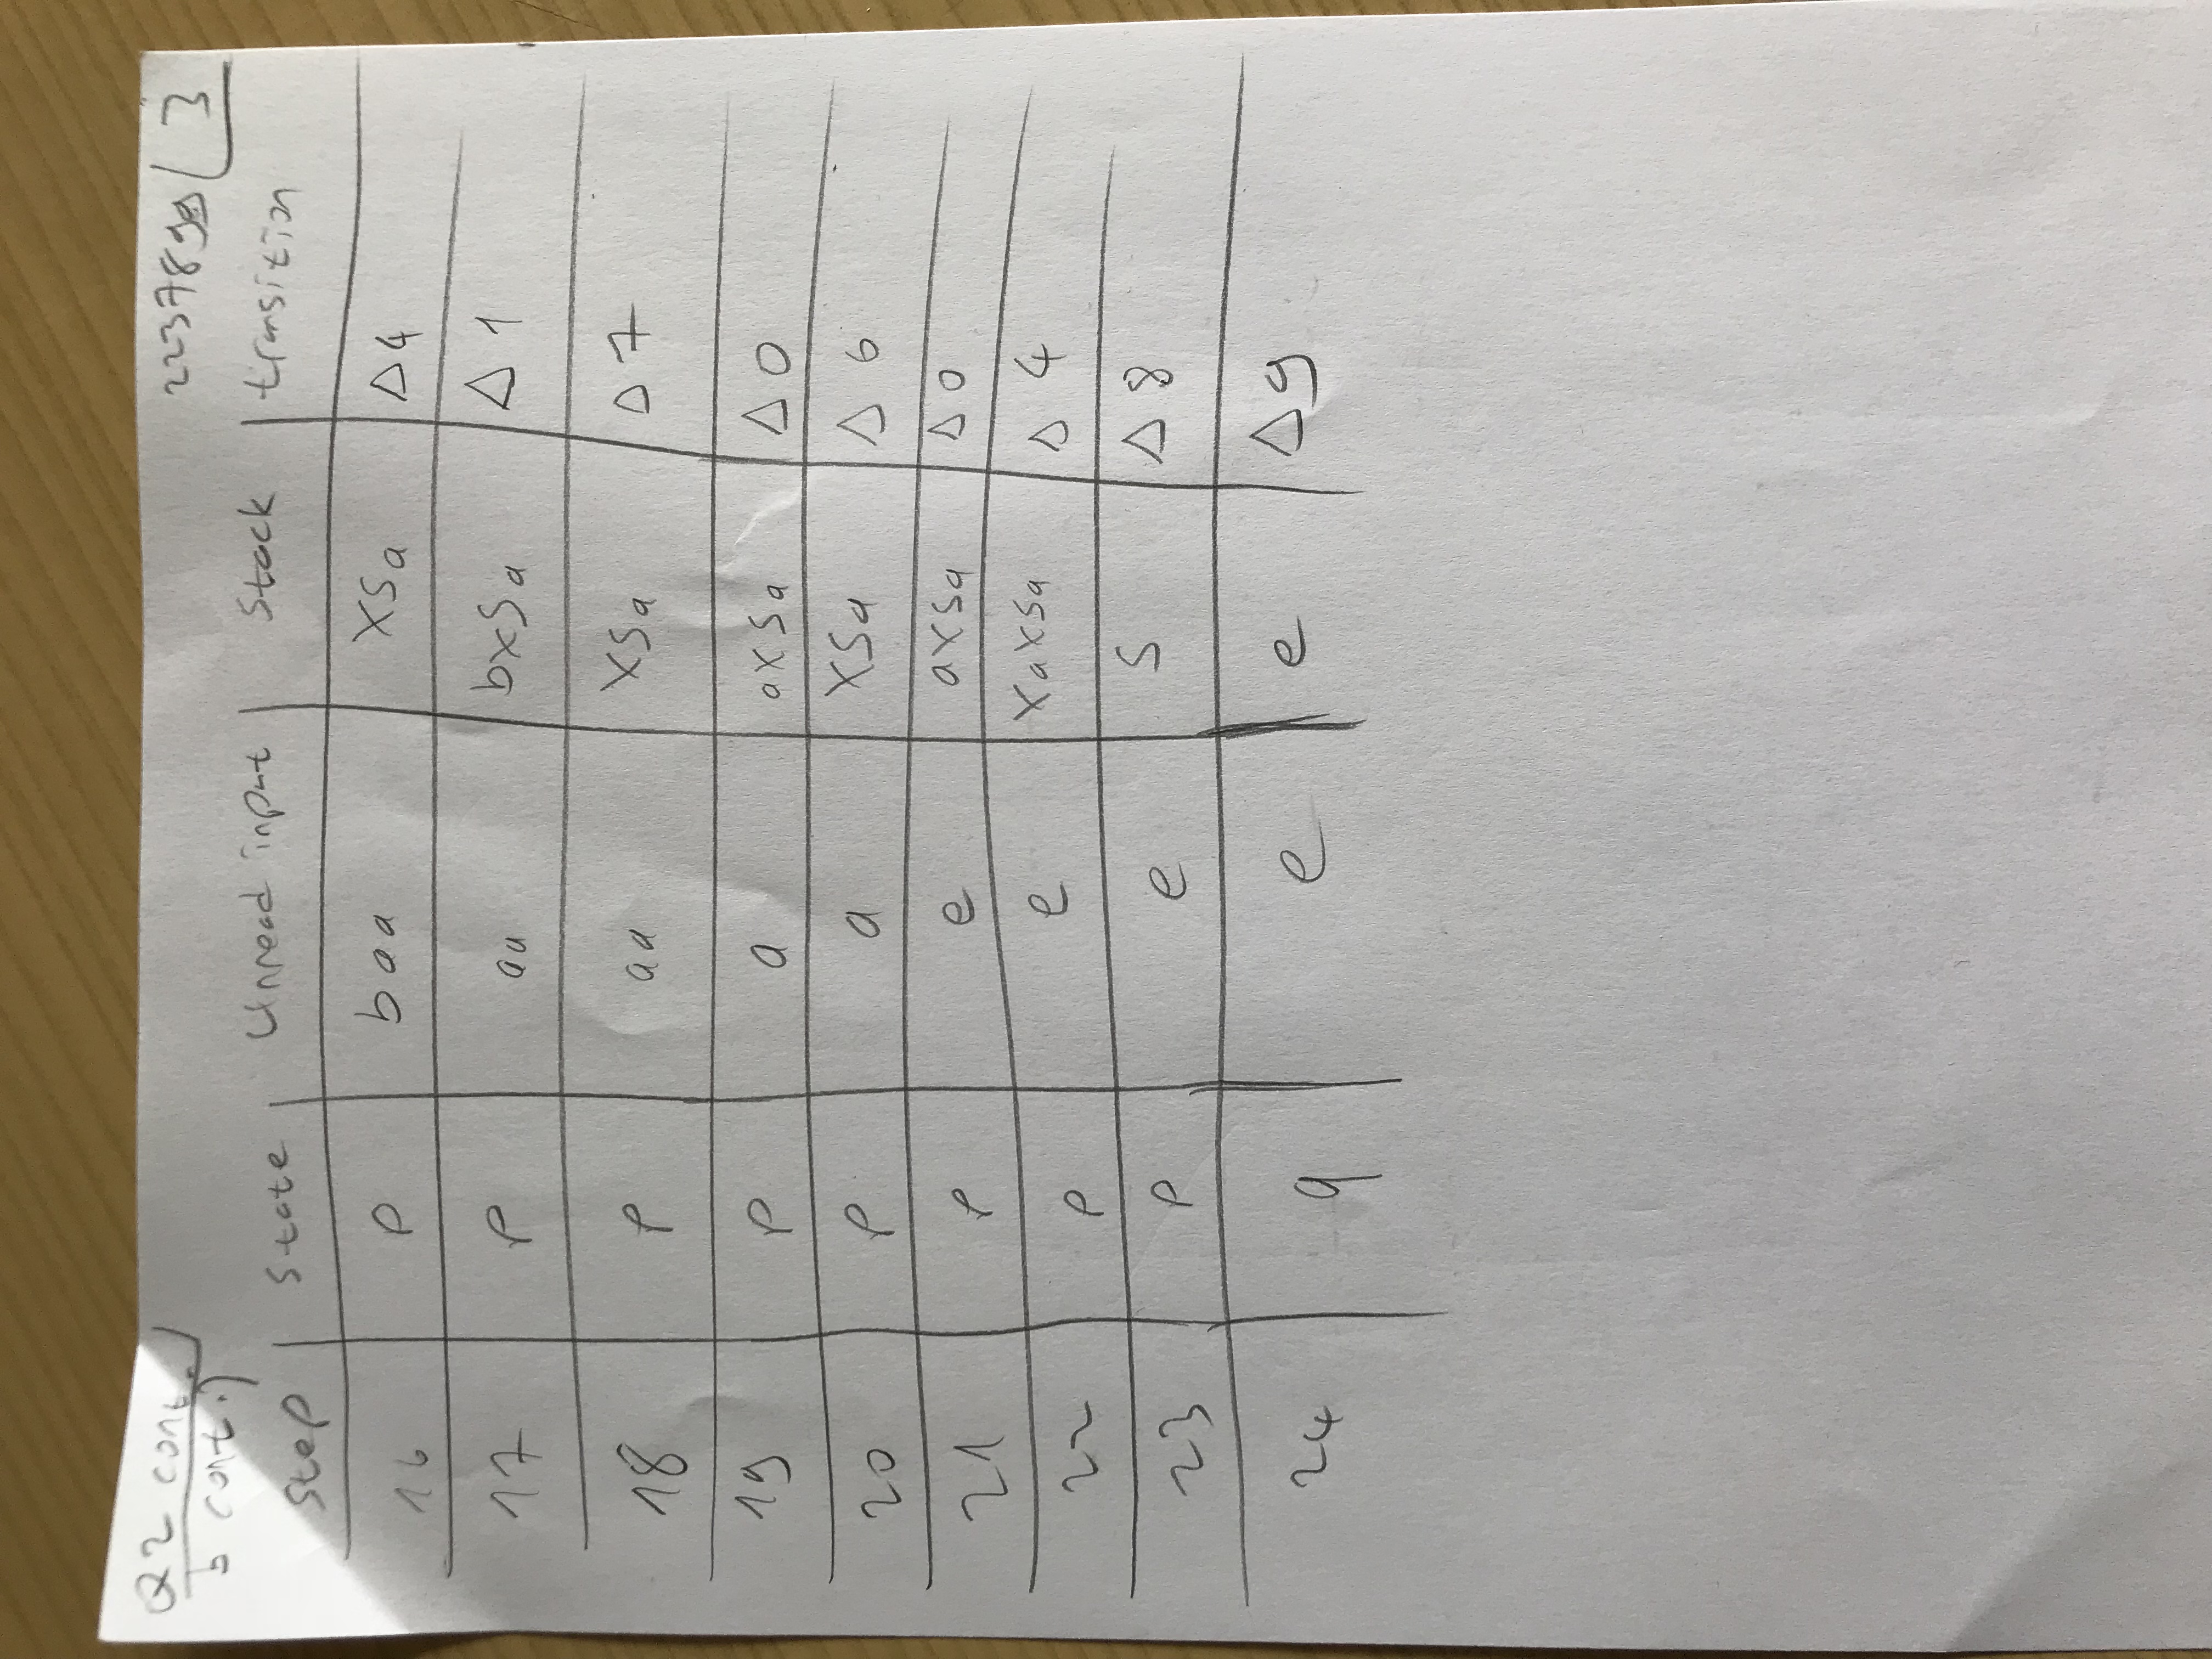 Q2 cont.
b cont.)
223789g 3
Step State Unread input Stack transition
16 p baa XSa Δ4
17 p aa bXSa Δ1
18 p aa XSa Δ7
19 p a aXSa Δ0
20 p a XSa Δ6
21 p e aXSa Δ0
22 p e XaXSa Δ4
23 p e S Δ8
24 q e e Δ9